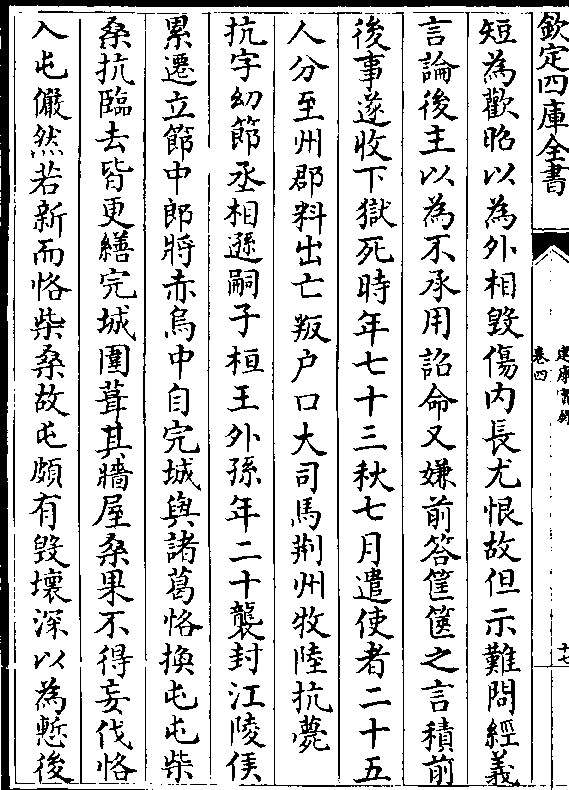 欽定四庫全書
建康實錄
卷四
十七
短為歡昭以為外相毀傷内長尤恨故但示難問經義
言論後主以為不承用詔命又嫌前答筐篋之言積前
後事遂收下獄死時年七十三秋七月遣使者二十五
人分至州郡料出亡叛户口大司馬荆州牧陸抗薨
抗字幼節丞相遜嗣子桓王外孫年二十襲封江陵侯
累遷立節中郎將赤烏中自完城與諸葛恪換屯屯柴
桑抗臨去皆更繕完城圍葺其牆屋桑果不得妄伐恪
入屯儼然若新而恪柴桑故屯頗有毀壞深以為慙後